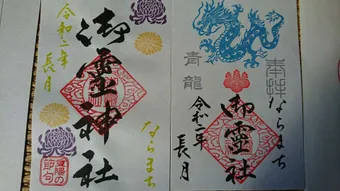 令和二年
長月
御霊神社
ならまち
重陽の
節句
奉拝
ならまち
青龍
御霊社
令和二年
長月